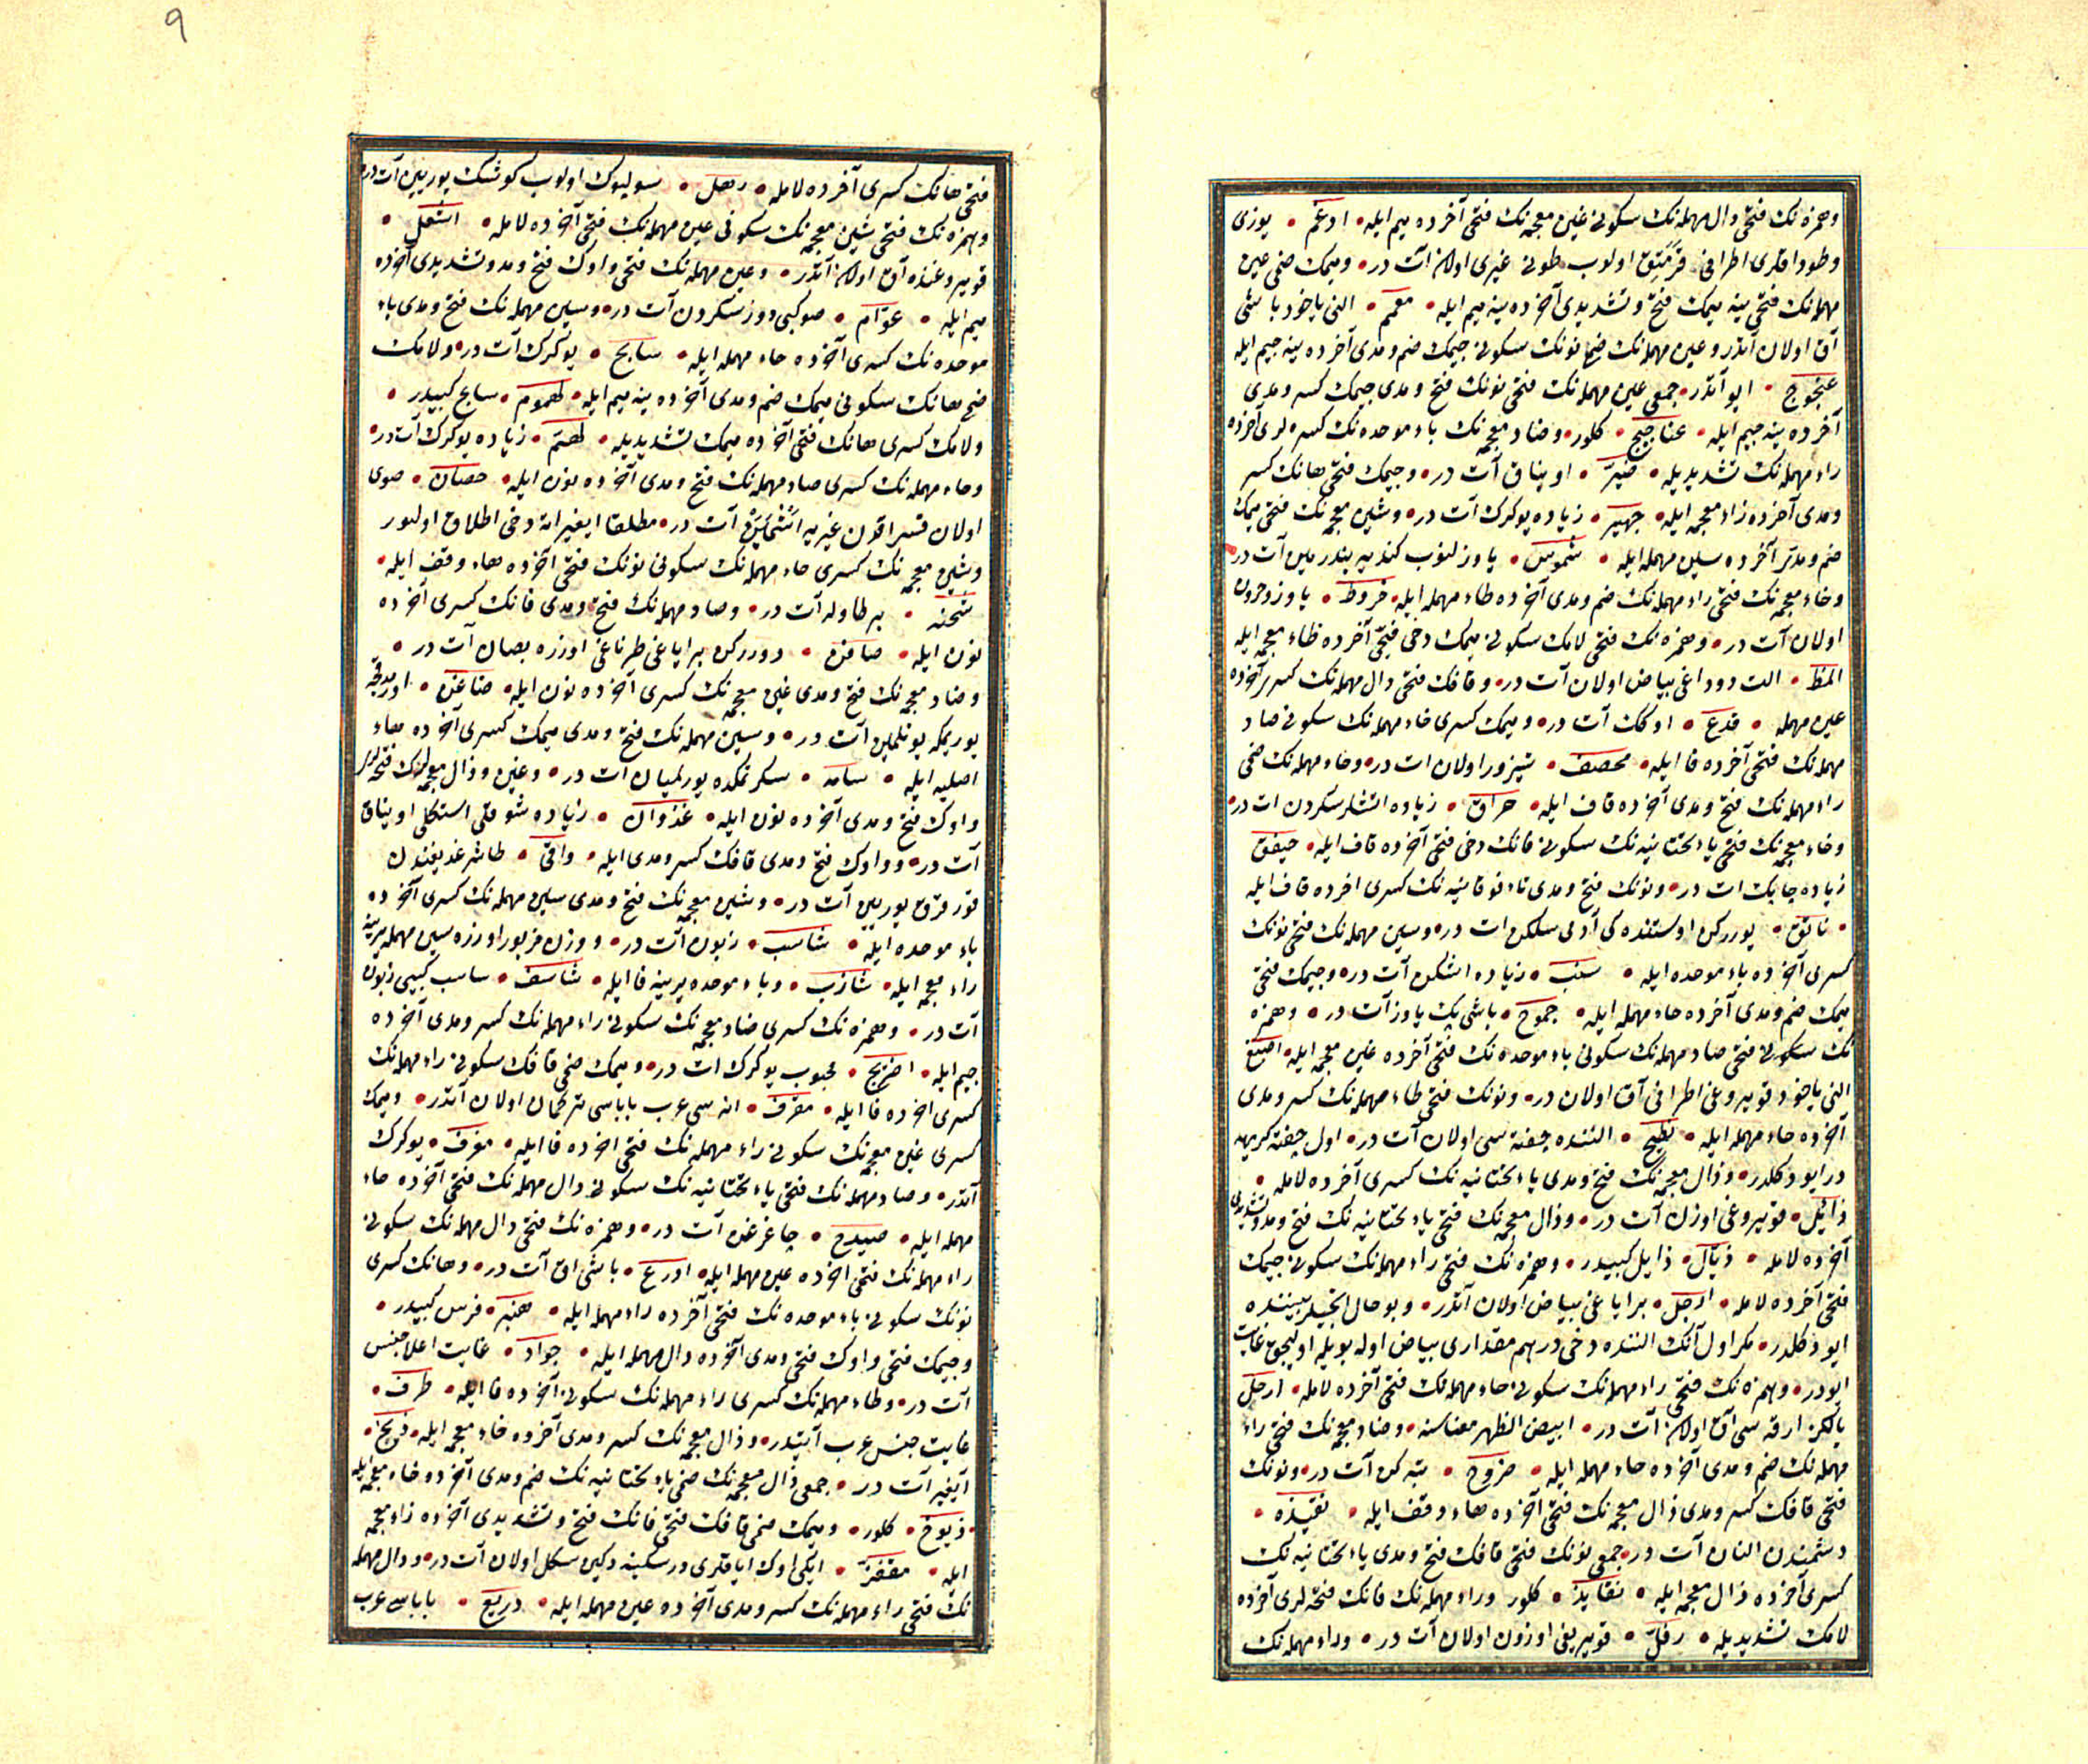 وهمزه نك فتحى دال مهمله نك سكونى غين معجمه نك فتحى آخرده ميم ايله • ادغم • يوزى
وطوداقلرى اطرافى قزمتق اولوب طونى غيرى اولان آت در • وميمك ضمى عين
مهمله نك فتحى ينه ميمك فتح وتشديدى آخرده ينه ميم ايله • معمم • النى ياخود باشى
آق اولان آتدر وعين مهمله نك ضمى نونك سكونى جيمك ضم ومدى آخرده ينه جيم ايله
عنجوج • ايو آتدر • جمعى عين مهمله نك فتحى نونك فتح ومدى جيمك كسر ومدى
آخرده ينه جيم ايله • عناجيج • كلور • وضاد معجمه نك باء موحده نك كسره لرى آخرده
راء مهمله نك تشديديله • ضبر • اويناق آت در • وجيمك فتحى هانك كسر
ومدى آخرده زاء معجمه ايله • جهيز • زياده يوكرك آت در • وشين معجمه نك فتحى ميمك
ضم ومدى آخرده سين مهمله ايله • شموس • ياوزلنوب كندييه بندرمين آت در •
وخاء معجمه نك فتحى راء مهمله نك ضم ومدى آخرده طاء مهمله ايله • خروط • ياوز وحرون
اولان آت در • وهمزه نك فتحى لامك سكونى ميمك دخى فتحى آخرده ظاء معجمه ايله
المظ • الت دوداغى بياض اولان آت در • وقافك فتحى دال مهمله نك كسرى آخرده
عين مهمله • قدع • اوكك آت در • وميمك كسرى حاء مهمله نك سكونى صاد
مهمله نك فتحى آخرده فا ايله • محصف • تيزور اولان ات در • وحاء مهمله نك ضمى
راء مهمله نك فتح ومدى آخرده قاف ايله • حراق • زياده اتشلر سكردن ات در •
وخاء معجمه نك فتحى ياء تحتانيه نك سكونى فانك دخى فتحى آخرده قاف ايله • خيفق
زياده چابك ات در • ونونك فتح ومدى تاء فوقانيه نك كسرى اخرده قاف ايله
• ناتق • يورركن اوستنده كى آدمى سلكن ات در • وسين مهمله نك فتحى نونك
كسرى آخرده باء موحده ايله • سنب • زياده اشكن آت در • وجيمك فتحى
ميمك ضم ومدى آخرده حاء مهمله ايله • جموح • باشى پك ياوز آت در • وهمزه
نك سكونى فتحى صاد مهمله نك سكونى باء موحده نك فتحى آخرده غين معجمه ايله • اصبغ
النى ياخود قويروغى اطرافى آق اولان در • ونونك فتحى طاء مهمله نك كسر ومدى
آخرده حاء مهمله ايله • نطيح • النده چفته سى اولان آت در • اول چفته كريهه
در ايو دكلدر • وذال معجمه نك فتح ومدى ياء تحتانيه نك كسرى آخرده لامله •
ذائل • قويروغى اوزن آت در • وذال معجمه نك فتحى ياء تحتانيه نك فتح ومد وتشديدى
آخرده لامله • ذيال • ذايل كبيدر • وهمزه نك فتحى راء مهمله نك سكونى جيمك
فتحى آخرده لامله • ارجل • بر اياغى بياض اولان آتدر • وبو حال انجيلر بيننده
ايو دكلدر • مكر اول آتك النده دخى درهم مقدارى بياض اوله بويله اوليجق غايت
ايودر • وهمزه نك فتحى راء مهمله نك سكونى حاء مهمله نك فتحى آخرده لامله • ارحل
يالكز ارقه سى آق اولان آت در • ابيض الظهر معناسنه • وضاد معجمه نك فتحى راء
مهمله نك ضم ومدى آخرده حاء مهمله ايله • ضروح • تپه كن آت در • ونونك
فتحى قافك كسر ومدى ذال معجمه نك فتحى آخرده هاء وقف ايله • نقيذه •
دشمندن النان آت در • جمعى نونك فتحى قافك فتح ومدى ياء تحتانيه نك
كسرى آخرده ذال معجمه ايله • نقايذ • كلور وراء مهمله نك فانك فتحه لرى آخرده
لامك تشديديله • رفل • قويريغى اوزون اولان آت در • وراء مهمله نك
فتحى هانك كسرى آخرده لامله • رهل • سولبوك اولوب كوشك يوريين آت در •
وهمزه نك فتحى شين معجمه نك سكونى عين مهمله نك فتحى آخرده لامله • اشعل •
قويروغنده آق اولان آتدر • وعين مهمله نك فتحى واوك فتح ومد وتشديدى آخرده
ميم ايله • عوام • صو كبى دوز سكردن آت در • وسين مهمله نك فتح ومدى باء
موحده نك كسرى آخرده حاء مهمله ايله • سابح • يوكرك آت در • ولامك
ضمى هانك سكونى ميمك ضم ومدى آخرده ينه ميم ايله • لهموم • سابح كبيدر •
ولامك كسرى هانك فتحى آخرده ميمك تشديديله • لهم • زياده يوكرك آت در •
وحاء مهمله نك كسرى صاد مهمله نك فتح ومدى آخرده نون ايله • حصان • صوى
اولان قسراقدن غيريه آشمين آت در • مطلقا ايغير اته دخى اطلاق اولنور
وشين معجمه نك كسرى حاء مهمله نك سكونى نونك فتحى آخرده هاء وقف ايله •
شحنه • بر طاوله آت در • وصاد مهمله نك فتح ومدى فانك كسرى آخرده
نون ايله • صافن • دورركن بر اياغى طرناغى اوزره بصان آت در •
وضاد معجمه نك فتح ومدى غين معجمه نك كسرى آخرده نون ايله • ضاغن • اورمدقجه
يوريمكه يوكلمين آت در • وسين مهمله نك فتح ومدى ميمك كسرى آخرده هاء
اصليه ايله • سامه • سكرتمكده يورلميان ات در • وغين وذال معجمه لرك فتحه لرى
واوك فتح ومدى آخرده نون ايله • غذوان • زياده شوقلى استكلى اويناق
آت در • وواوك فتح ومدى قافك كسر ومدى ايله • واقى • طاشلغه يقندن
قورقرق يوريين آت در • وشين معجمه نك فتح ومدى سين مهمله نك كسرى آخرده
باء موحده ايله • شاسب • زبون آت در • ووزن مزبور اوزره سين مهمله يرينه
زاء معجمه ايله • شازب • وباء موحده يرينه فا ايله • شاسف • شاسب كبى زبون
آت در • وهمزه نك كسرى ضاد معجمه نك سكونى راء مهمله نك كسر ومدى آخرده
جيم ايله • اضريج • محبوب يوكرك ات در • وميمك ضمى قافك سكونى راء مهمله نك
كسرى اخرده فا ايله • مقرف • انه سى عرب باباسى تركمان اولان آتدر • وميمك
كسرى غين معجمه نك سكونى راء مهمله نك فتحى اخرده فا ايله • مغرف • يوكرك
آتدر • وصاد مهمله نك فتحى ياء تحتانيه نك سكونى دال مهمله نك فتحى آخرده حاء
مهمله ايله • صيدح • چاغرغن آت در • وهمزه نك فتحى دال مهمله نك سكونى
راء مهمله نك فتحى اخرده عين مهمله ايله • ادرع • باشى اق آت در • وهانك كسرى
نونك سكونى باء موحده نك فتحى آخرده راء مهمله ايله • هنبر • فرس كبيدر •
وجيمك فتحى واوك فتحى ومدى آخرده دال مهمله ايله • جواد • غايت اعلا جنس
آت در • وطاء مهمله نك كسرى راء مهمله نك سكونى آخرده فا ايله • طرف •
غايت جنس عرب آتيدر • وذال معجمه نك كسر ومدى آخرده خاء معجمه ايله • ذيخ •
آيغير آت در • جمعى ذال معجمه نك ضمى ياء تحتانيه نك ضم ومدى آخرده خاء معجمه ايله
• ذيوخ • كلور • وميمك ضمى قافك فتحى فانك فتح وتشديدى آخرده زاء معجمه
ايله • مقفز • ايكى اوك اياقلرى درسكينه دكين سكل اولان آت در • ودال مهمله
نك فتحى راء مهمله نك كسر ومدى آخرده عين مهمله ايله • دريع • باباسى عرب
٩